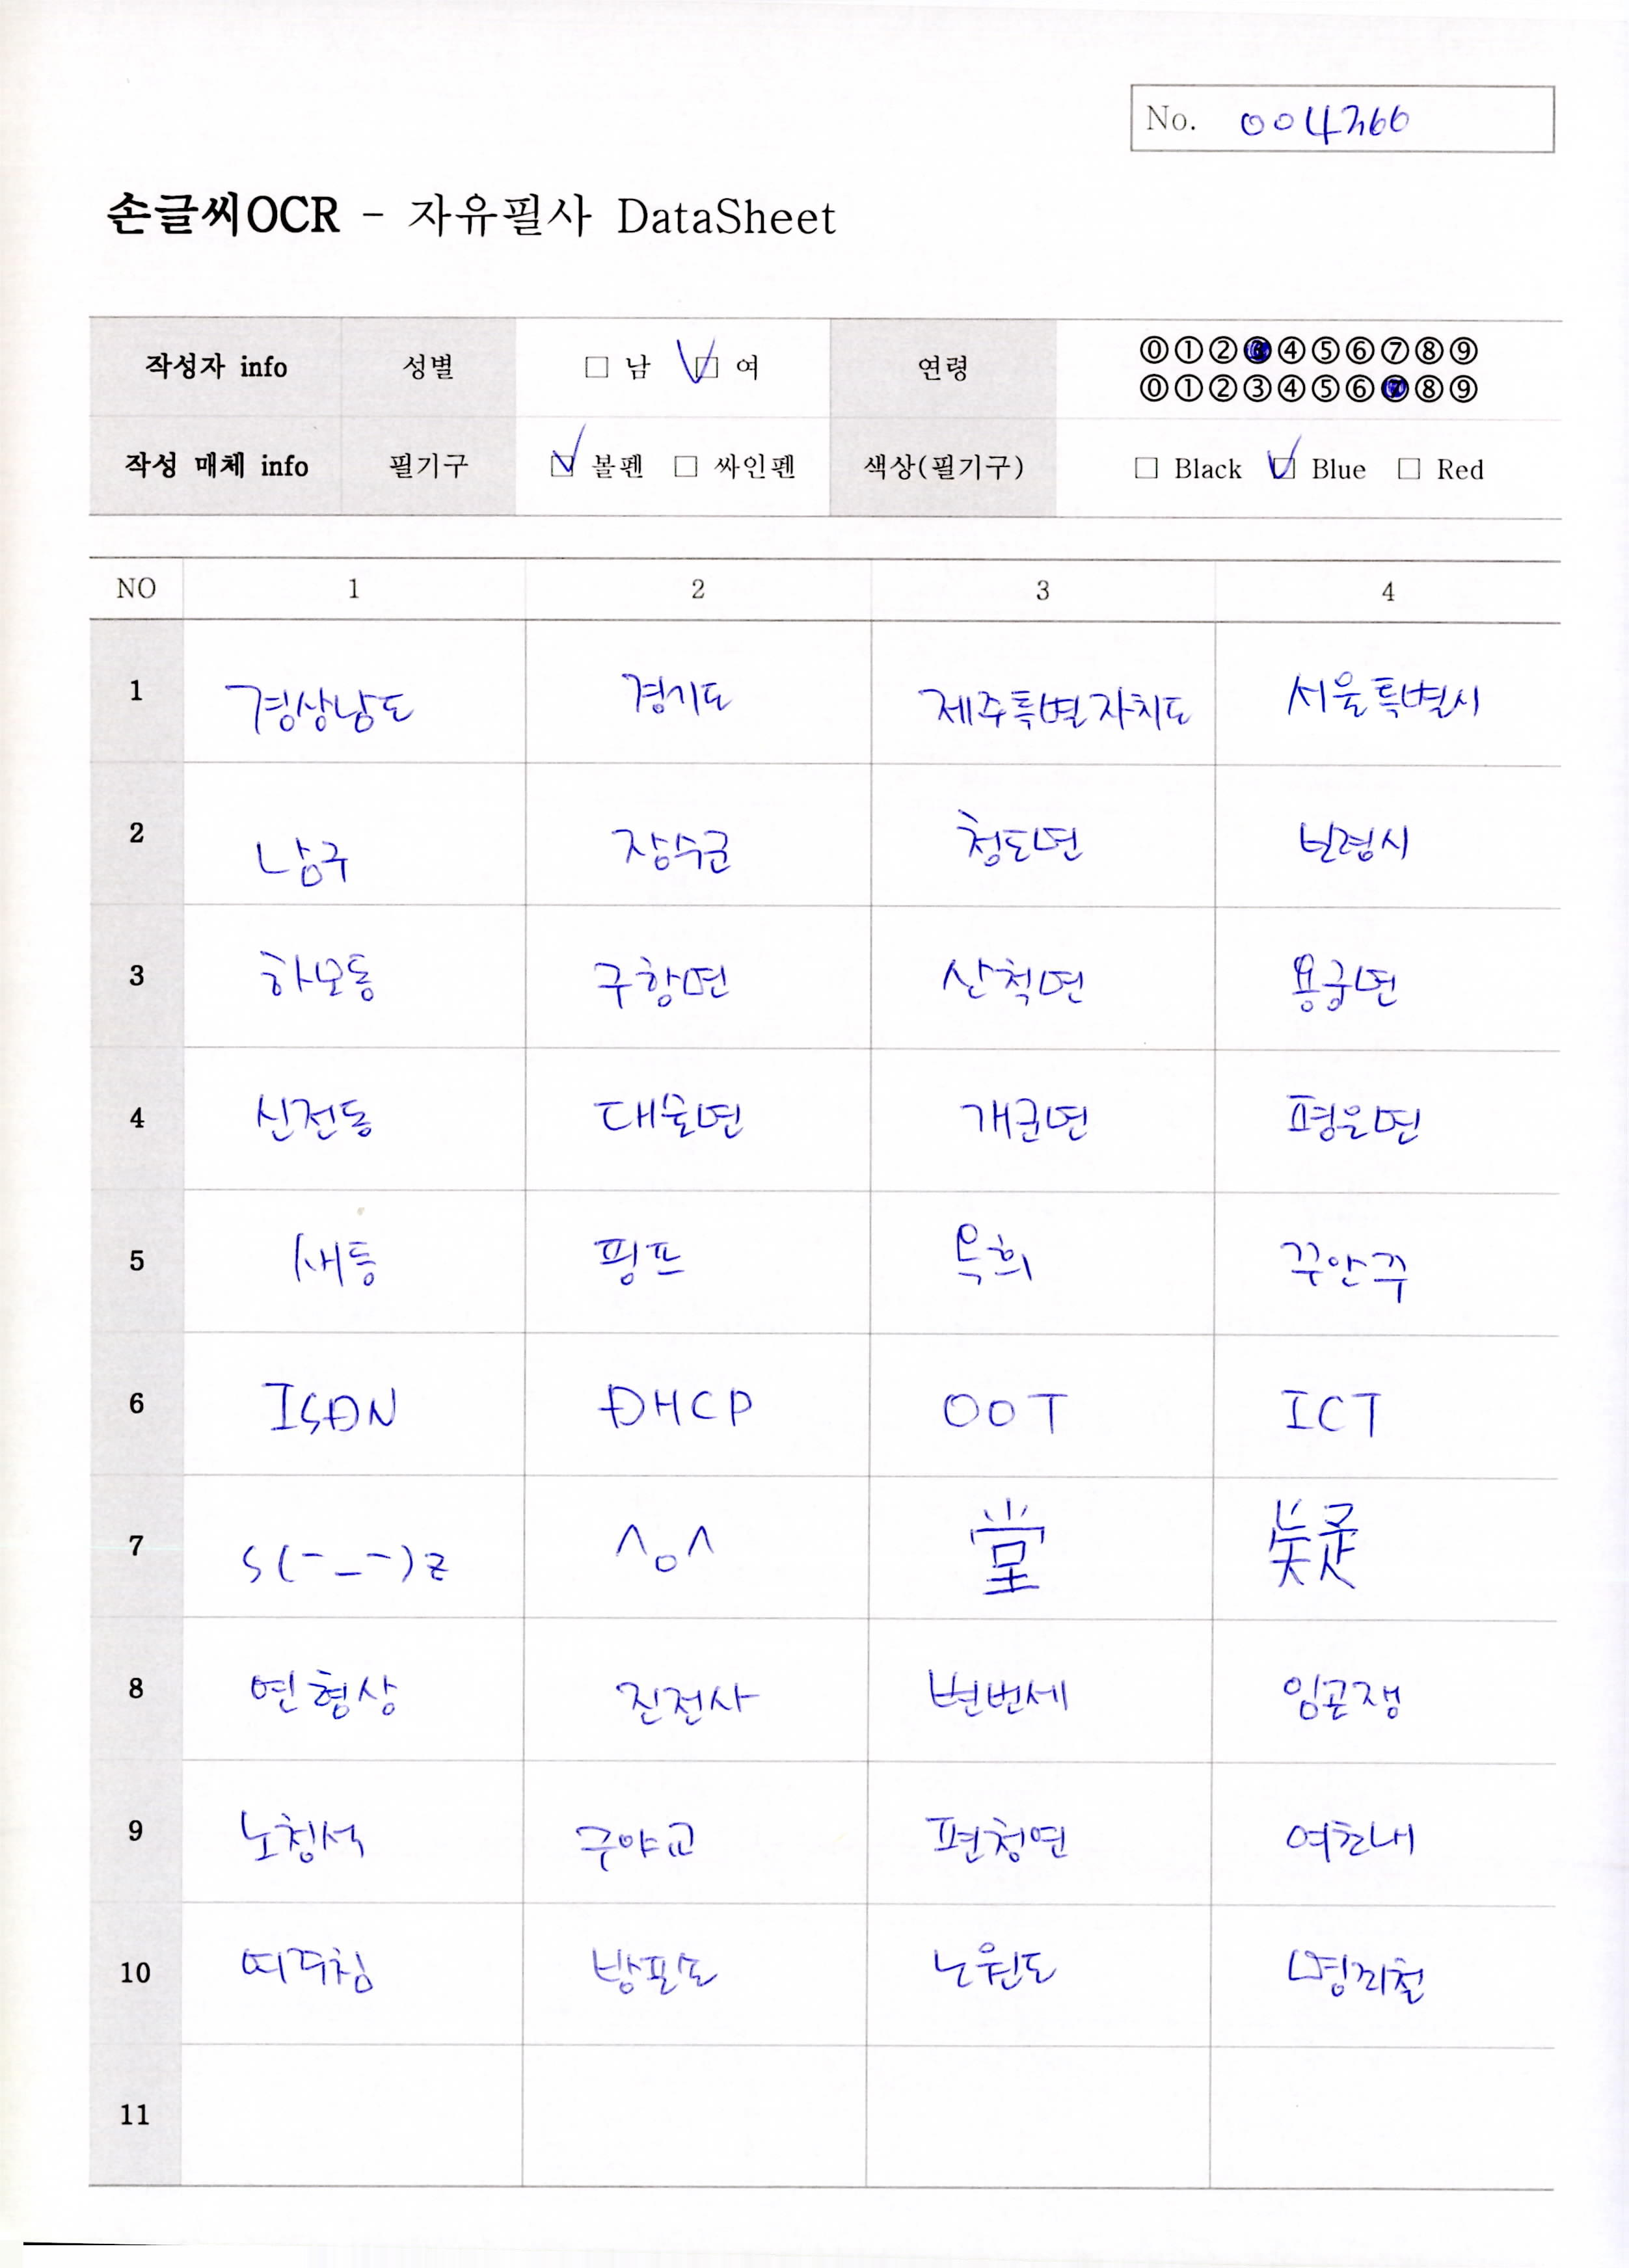 No. 004366
손글씨OCR - 자유필사 DataSheet
작성자 info 성별 □ 남 ☑ 여 연령 ⓪①②③④⑤⑥⑦⑧⑨
⓪①②③④⑤⑥⑦⑧⑨
작성 매체 info 필기구 ☑ 볼펜 □ 싸인펜 색상(필기구) □ Black ☑ Blue □ Red
NO 1 2 3 4
1 경상남도 경기도 제주특별자치도 서울특별시
2 남구 장수군 청도면 보령시
3 하모동 구항면 산척면 용궁면
4 신전동 대술면 개군면 평은면
5 새등 핑프 옥희 꾸안꾸
6 ISDN DHCP OOT ICT
7 s(-_-)z ^o^ 堂 疑
8 연형상 진전사 변번세 임곤쟁
9 노칭석 구야교 편청연 여친내
10 띠꾸침 방파도 노원도 명끼철
11